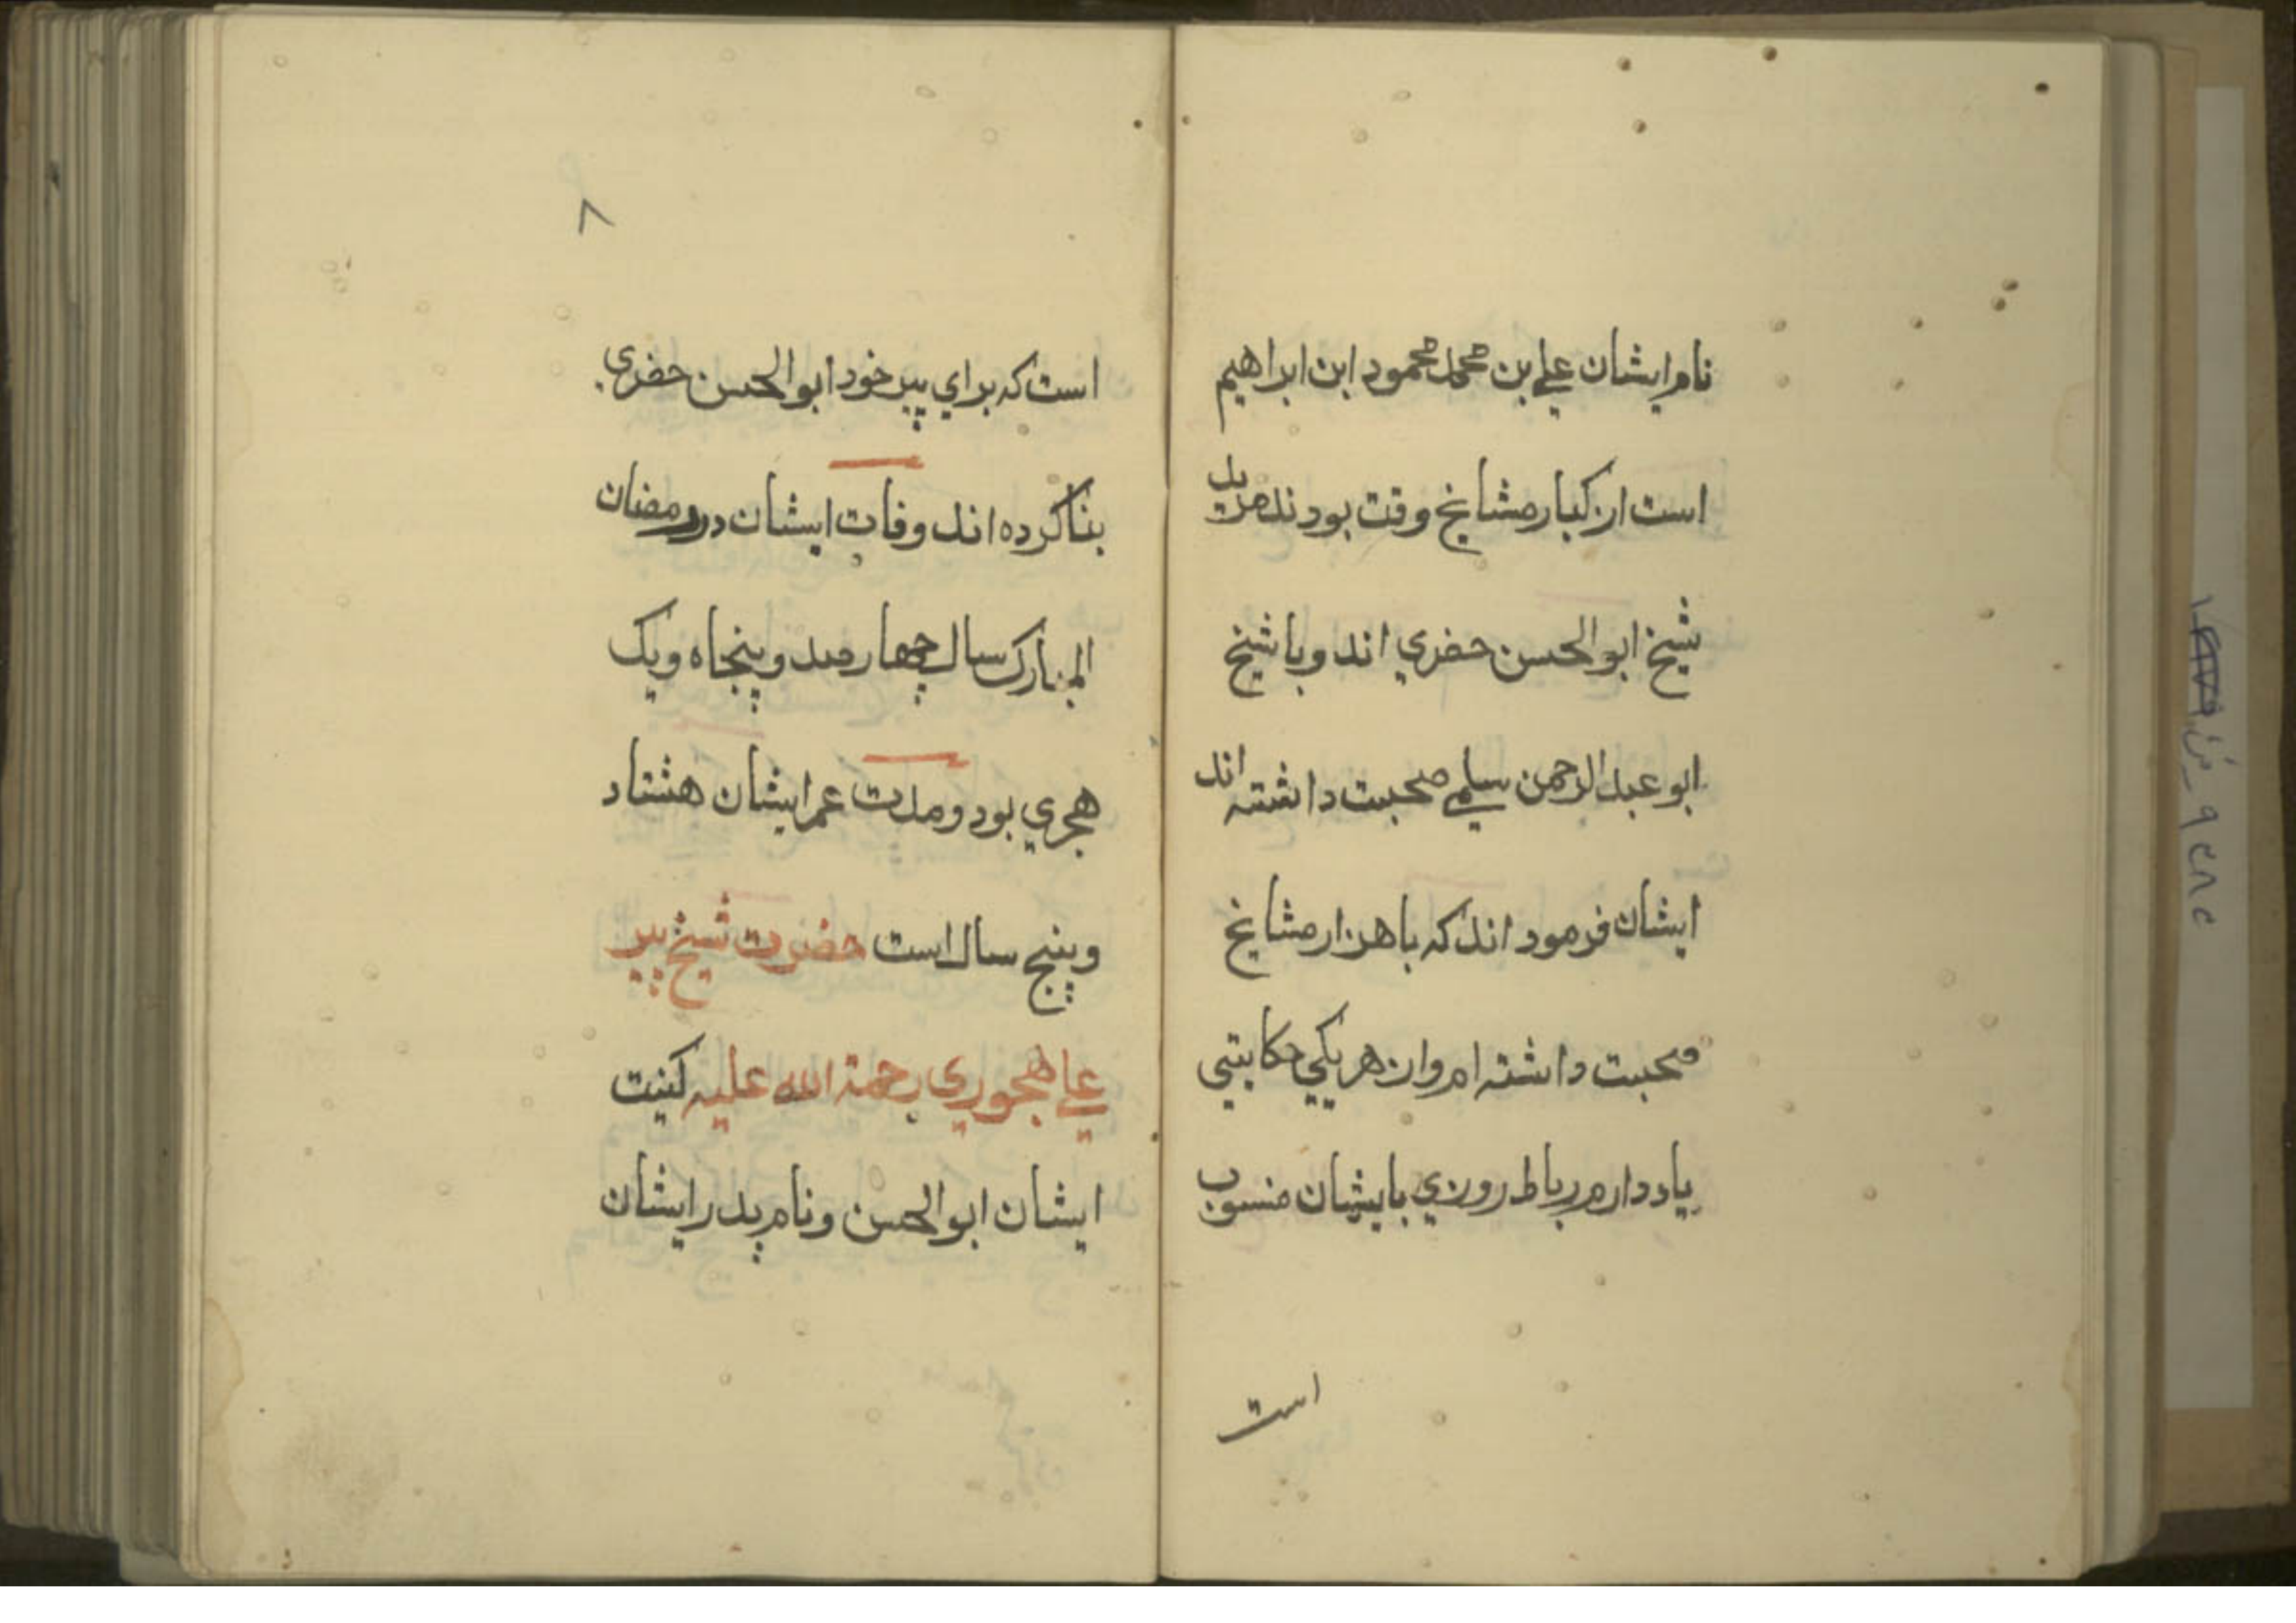 نام ایشان علي بن محمد محمود ابن ابراهیم
است از کبار مشایخ وقت بودند مرید
شیخ ابوالحسن حضري اند و با شیخ
ابو عبدالرحمن سلمي صحبت داشته اند
ایشان فرمود اند که با هزار مشایخ
صحبت داشته ام و از هر یکي حکایتي
یاد دارم رباط روزني بایشان منسوب
است
۸
است که براي پیر خود ابوالحسن حضري
بنا کرده اند وفات ایشان در رمضان
المبارک سال چهار صد و پنجاه و یک
هجري بود و مدت عمر ایشان هشتاد
و پنج سال است حضرت شیخ پیر
علي هجوري رحمة الله علیه کنیت
ایشان ابوالحسن و نام پدر ایشان